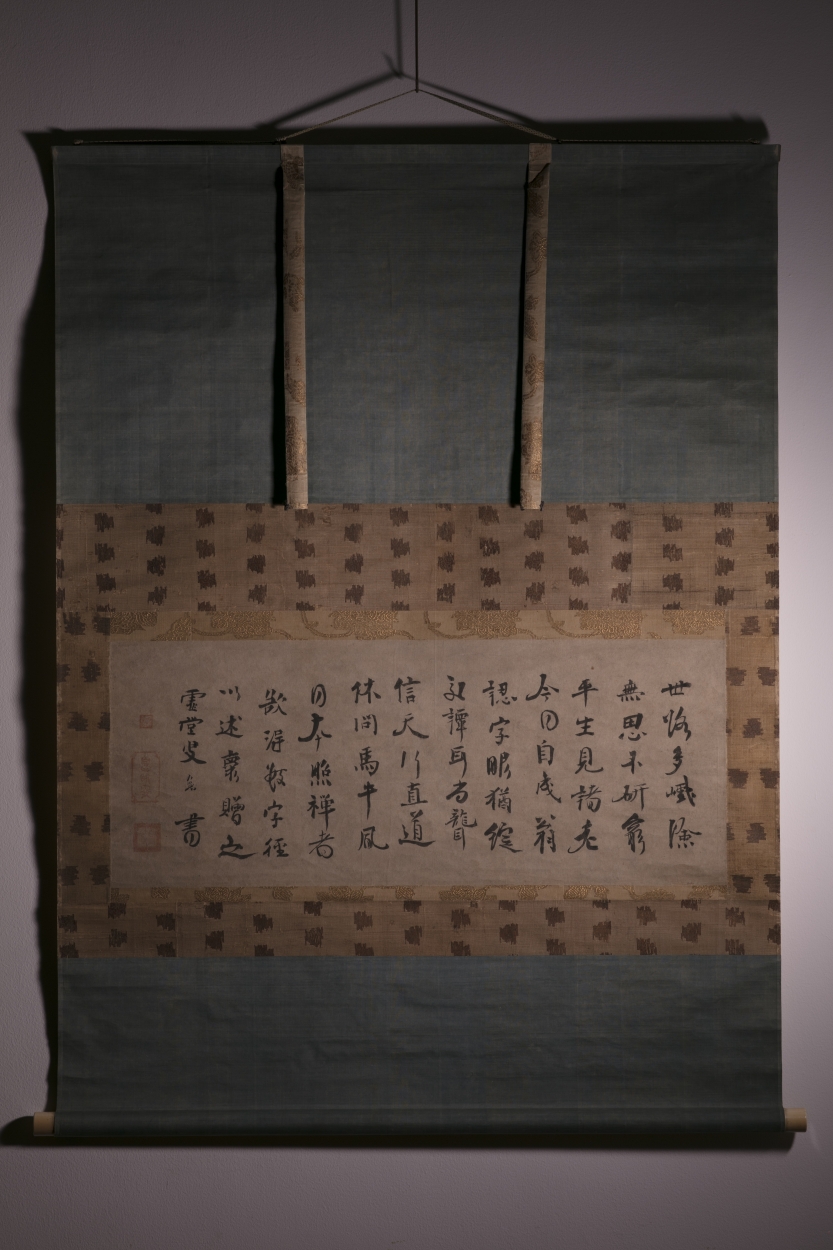 世路多巇險
無思不研窮
平生見諸老
今日自成翁
認字眼猶綻
交譚耳尚聾
信天行直道
休問馬牛風
日本照禪者
欲得數字徑
以述懷贈之
虚堂叟書